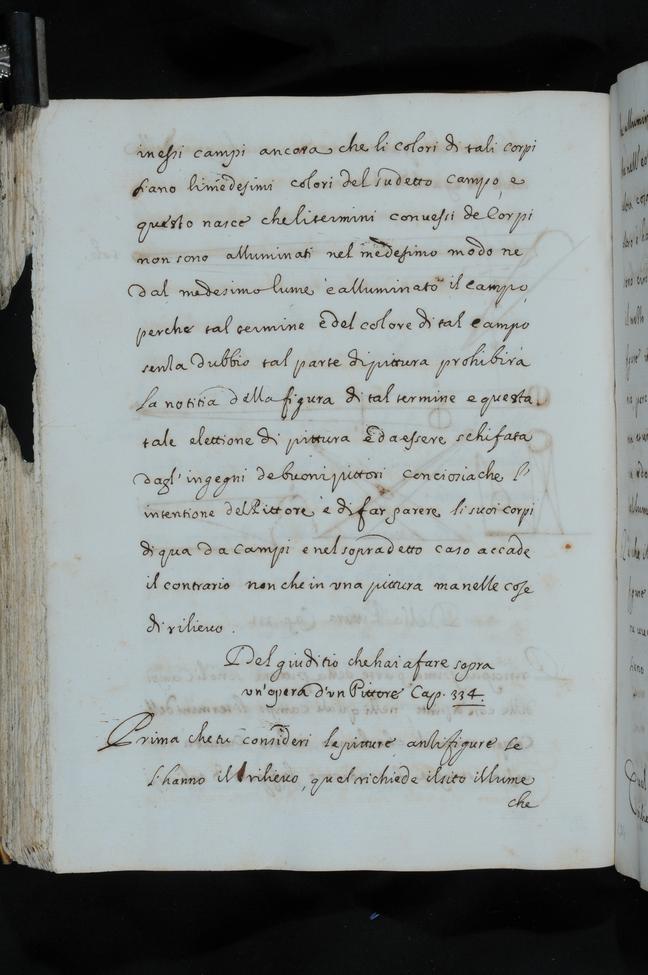 inessi campi ancora che li colori di tali corpi
siano li medesimi colori del sudetto campo, e
questo nasce che li termini convessi de Corpi
non sono alluminati nel medesimo modo ne
dal medesimo lume è alluminato il campo,
perche tal termine è del colore di tal campo
senza dubbio tal parte di pittura prohibirà
la notitia della figura di tal termine e questa
tale elettione di pittura è da essere schifata
dagl' ingegni de buoni pittori conciosiache l'
intentione del Pittore è di far parere li suoi corpi
di qua da campi e nel sopradetto caso accade
il contrario non che in una pittura ma nelle cose
di rilievo.
Del giuditio che hai a fare sopra
un' opera d'un Pittore Cap. 334.
Prima che tu consideri le pitture anti figure se
l' hanno il rilievo, qual richiede il sito il lume
che